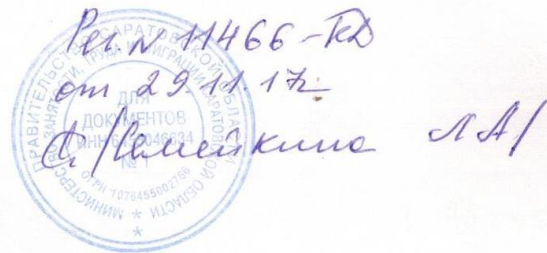 Рег. № 11466-КД
от 29.11.17г.
Ремейкина Л А/
ПРАВИТЕЛЬСТВО САРАТОВСКОЙ ОБЛАСТИ
МИНИСТЕРСТВО ЗАНЯТОСТИ, ТРУДА И МИГРАЦИИ САРАТОВСКОЙ ОБЛАСТИ
ДЛЯ
ДОКУМЕНТОВ
№ 1
ОГРН 1076455002766